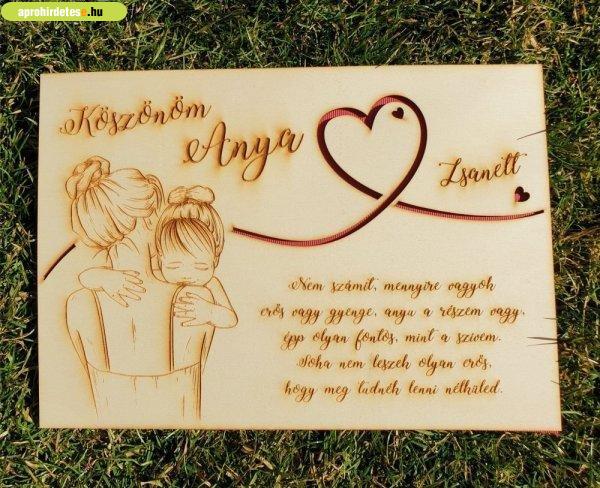 aprohirdetes.hu
Köszönöm
Anya
Zsanett
Nem számít, mennyire vagyok
erős vagy gyenge, anyu a részem vagy,
épp olyan fontos, mint a szívem.
Soha nem leszek olyan erős,
hogy meg tudnék lenni nélküled.